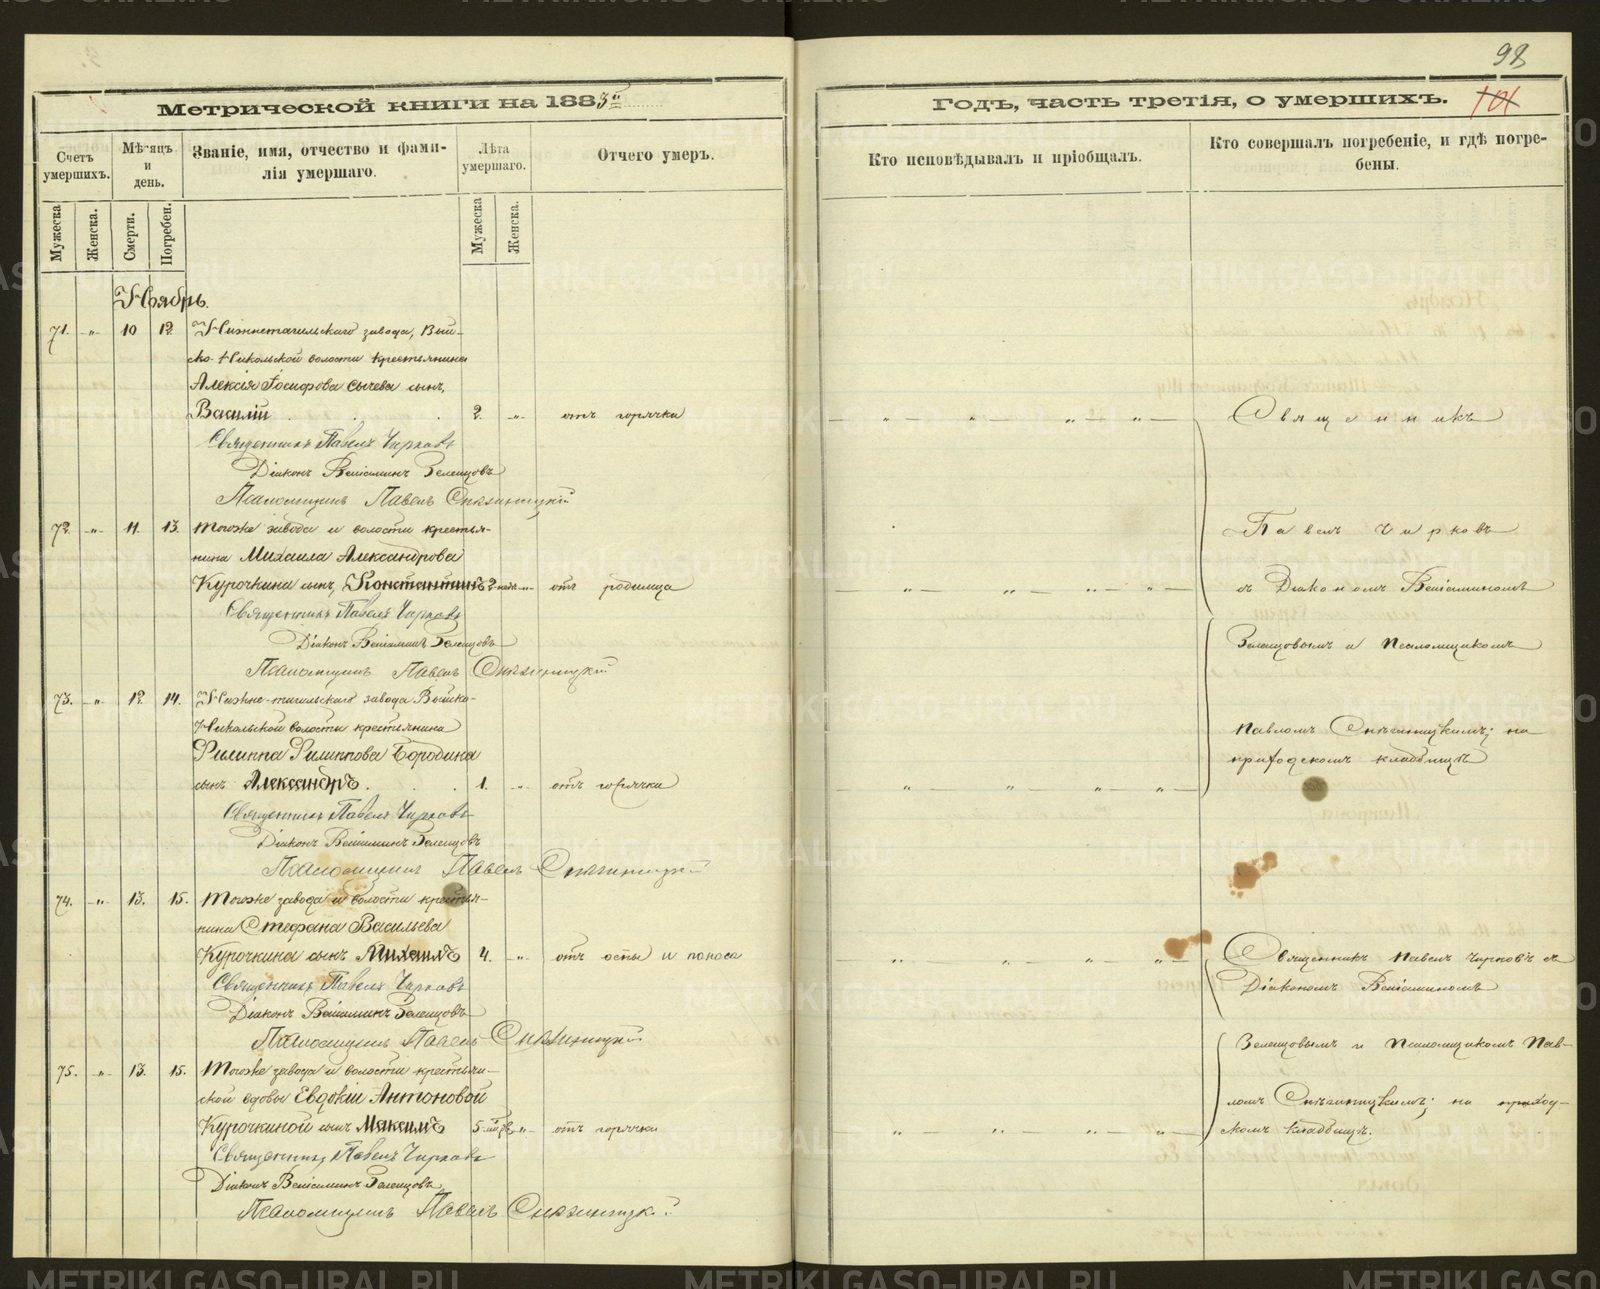 98
Метрической книги на 1883й
Годъ, часть третія, о умершихъ.
101
Счетъ умершихъ.
Мѣсяцъ и день.
Званіе, имя, отчество и фами-
лія умершаго.
Лѣта умершаго.
Отчего умеръ.
Кто исповѣдывалъ и пріобщалъ.
Кто совершалъ погребеніе, и гдѣ погре-
бены.
Мужеска
Женска.
Смерти.
Погребен.
Мужеска
Женска.
Ноябрь.
71. „ 10 12 Нижнетагильскаго завода, Вый-
ско-Никольской волости крестьянина
Алексія Іосифова Сычева сынъ,
Василій 2. „ отъ горячки
Священникъ Павелъ Чирковъ
Діаконъ Веніаминъ Зеленцовъ
Псаломщикъ Павелъ
72. „ 11. 13. Тогоже завода и волости крестья-
нина Михаила Александрова
Курочкина сынъ, Константинъ 2 нед. „ отъ родимца
Священникъ Павелъ Чирковъ
Діаконъ Веніаминъ Зеленцовъ
Псаломщикъ Павелъ
73. „ 12. 14. Нижне-тагильскаго завода Выйско-
Никольской волости крестьянина
Филиппа Филиппова Бородина
сынъ Александръ 1. „ отъ горячки
Священникъ Павелъ Чирковъ
Діаконъ Веніаминъ Зеленцовъ
Псаломщикъ Павелъ
74. „ 13. 15. Тогоже завода и волости крестья-
нина Стефана Васильева
Курочкина сынъ Михаилъ 4. „ отъ оспы и поноса
Священникъ Павелъ Чирковъ
Діаконъ Веніаминъ Зеленцовъ
Псаломщикъ Павелъ
75. „ 13. 15. Тогоже завода и волости крестьян-
ской вдовы Евдокіи Антоновой
Курочкиной сынъ Максимъ 5 „ отъ горячки
Священникъ Павелъ Чирковъ
Діаконъ Веніаминъ Зеленцовъ
Псаломщикъ Павелъ
Священникъ
Павелъ Чирковъ
съ Діакономъ Веніаминомъ
Зеленцовымъ и Псаломщикомъ
Павломъ на
приходскомъ кладбищѣ
Священникъ Павелъ Чирковъ съ
Діакономъ Веніаминомъ
Зеленцовымъ и Псаломщикомъ Пав-
ломъ на приход-
скомъ кладбищѣ.
METRIKI.GASO-URAL.RU